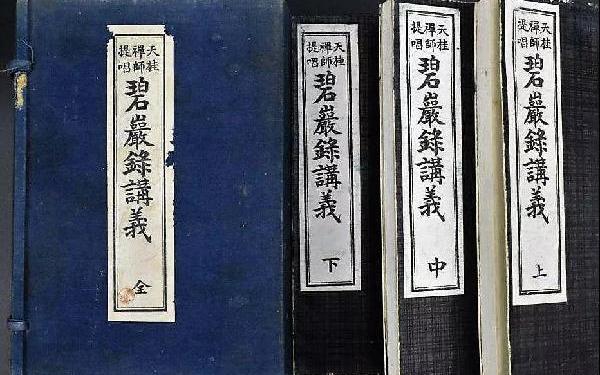 天桂禅師提唱
碧巖錄講義
全
天桂禅師提唱
碧巖錄講義
下
天桂禅師提唱
碧巖錄講義
中
天桂禅師提唱
碧巖錄講義
上